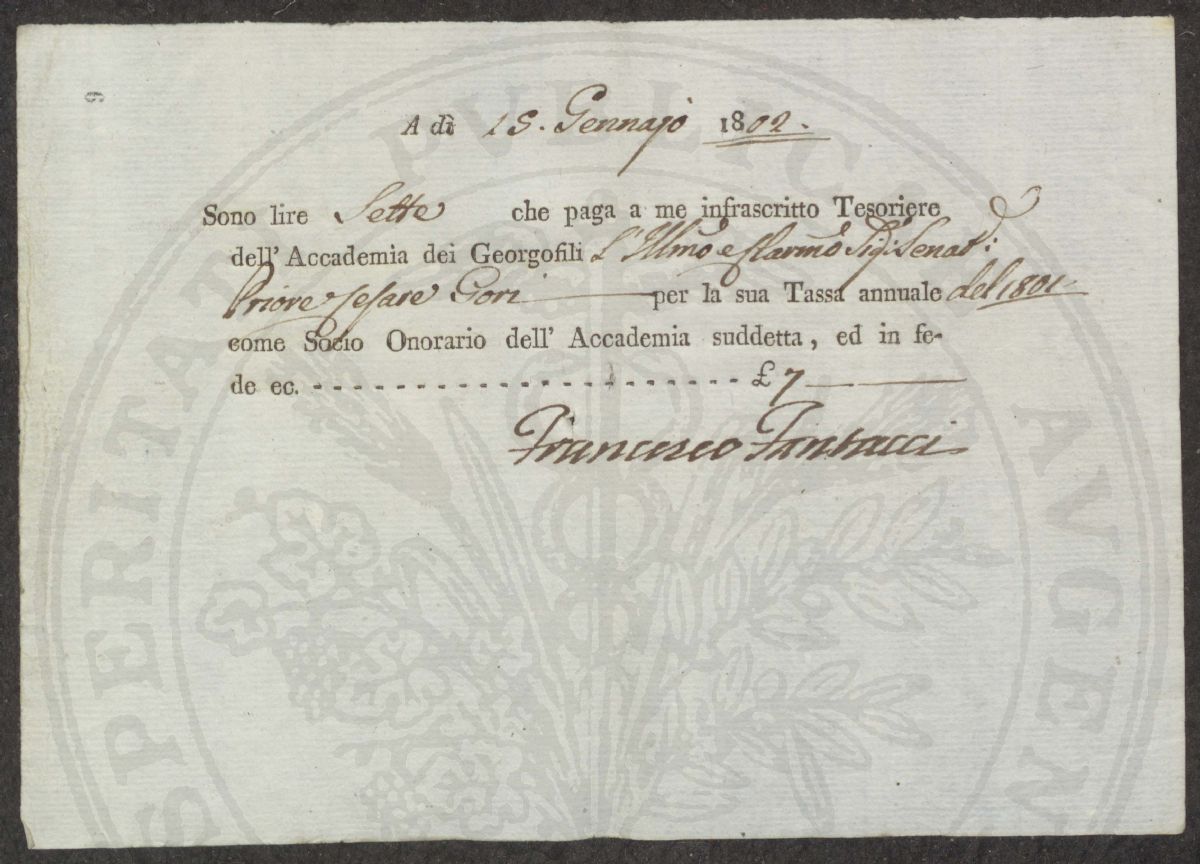 A dì 15. Gennajo 1802.
Sono lire Sette che paga a me infrascritto Tesoriere
dell' Accademia dei Georgofili L'Illmo e Clarmo Sig: Senat:
Priore Cesare Gori per la sua Tassa annuale del 1801
come Socio Onorario dell' Accademia suddetta, ed in fe-
de ec. - - - - - - - - - - - - - - - - - - - - - - - £ 7
Francesco
PROSPERITATI PVBLICAE AVGENDAE